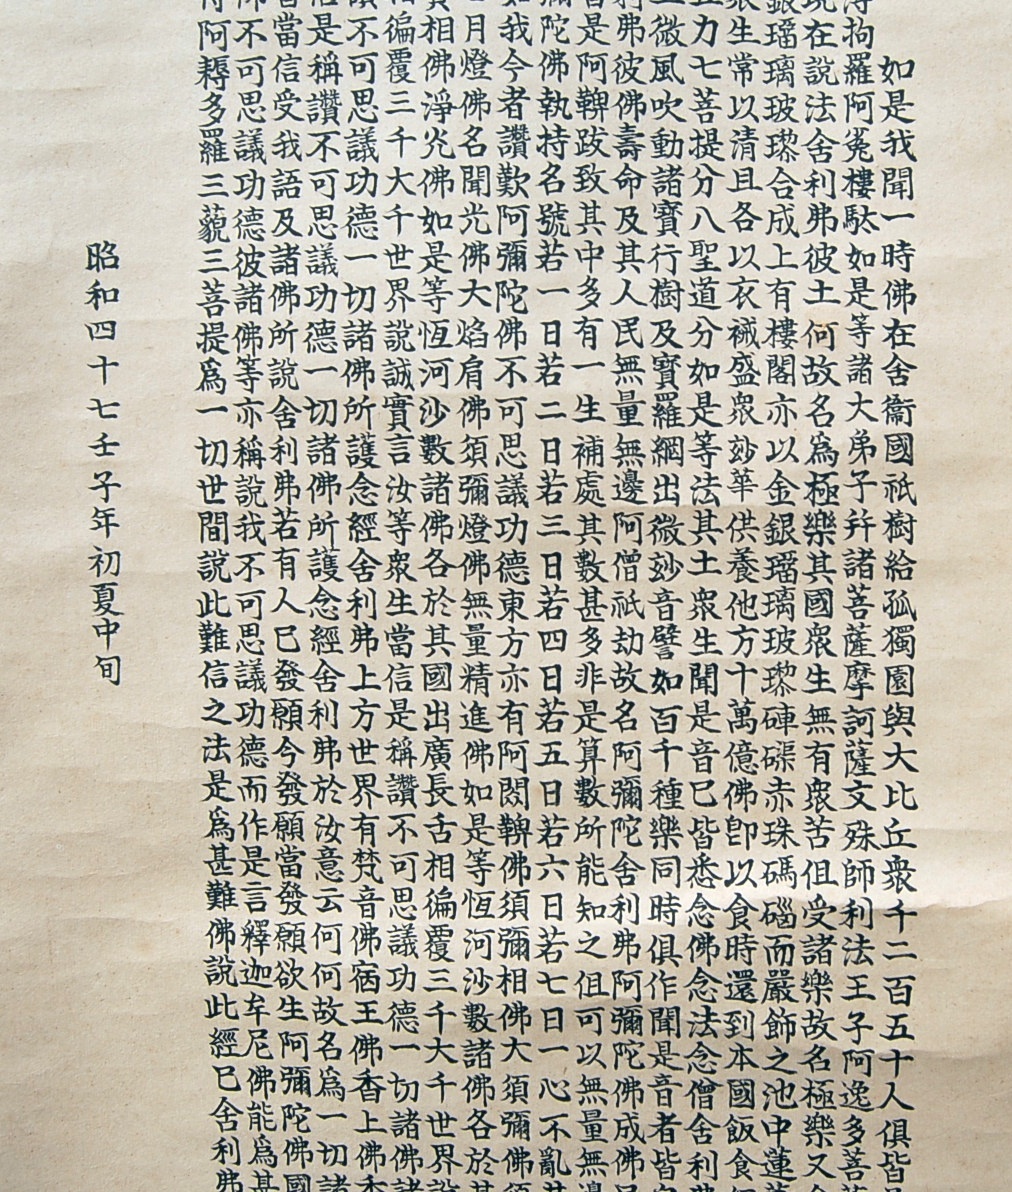 如是我聞一時佛在舍衞國祇樹給孤獨園與大比丘衆千二百五十人俱皆
拘羅阿㝹樓馱如是等諸大弟子幷諸菩薩摩訶薩文殊師利法王子阿逸多菩
現在說法舍利弗彼土何故名爲極樂其國衆生無有衆苦但受諸樂故名極樂又
銀瑠璃玻瓈合成上有樓閣亦以金銀瑠璃玻瓈硨磲赤珠碼碯而嚴飾之池中蓮
衆生常以清旦各以衣裓盛衆玅華供養他方十萬億佛卽以食時還到本國飯食
五力七菩提分八聖道分如是等法其土衆生聞是音已皆悉念佛念法念僧舍利
微風吹動諸寶行樹及寶羅網出微玅音譬如百千種樂同時俱作聞是音者皆
利弗彼佛壽命及其人民無量無邊阿僧祇劫故名阿彌陀舍利弗阿彌陀佛成佛
皆是阿鞞跋致其中多有一生補處其數甚多非是算數所能知之但可以無量無邊
彌陀佛執持名號若一日若二日若三日若四日若五日若六日若七日一心不亂其
如我今者讚歎阿彌陀佛不可思議功德東方亦有阿閦鞞佛須彌相佛大須彌佛須
月燈佛名聞光佛大焰肩佛須彌燈佛無量精進佛如是等恆河沙數諸佛各於其
寶相佛淨光佛如是等恆河沙數諸佛各於其國出廣長舌相徧覆三千大千世界說
相徧覆三千大千世界說誠實言汝等衆生當信是稱讚不可思議功德一切諸佛
讚不可思議功德一切諸佛所護念經舍利弗上方世界有梵音佛宿王佛香上佛香
信是稱讚不可思議功德一切諸佛所護念經舍利弗於汝意云何何故名爲一切諸
皆當信受我語及諸佛所說舍利弗若有人已發願今發願當發願欲生阿彌陀佛國
佛不可思議功德彼諸佛等亦稱說我不可思議功德而作是言釋迦牟尼佛能爲甚
得阿耨多羅三藐三菩提爲一切世間說此難信之法是爲甚難佛說此經已舍利弗
昭和四十七壬子年初夏中旬